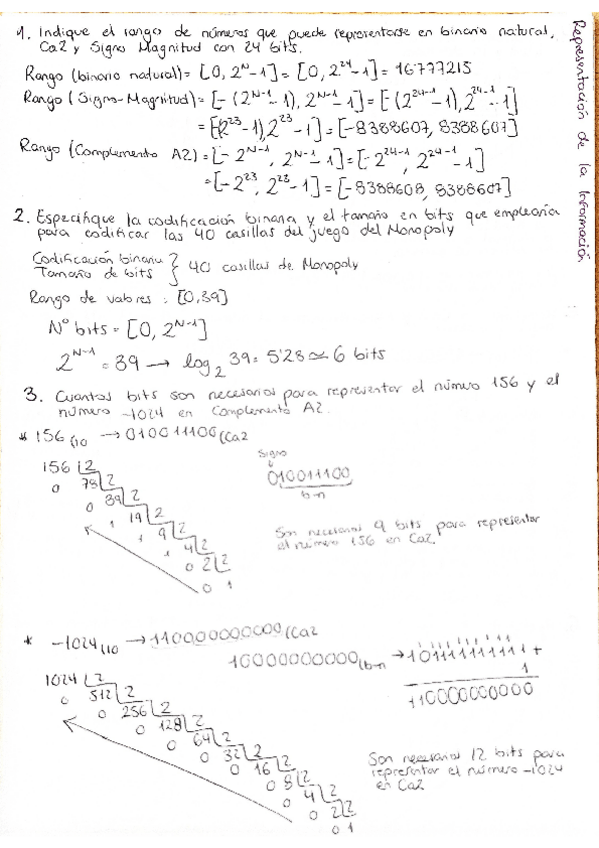 Representación de la Información
1. Indique el rango de números que puede representarse en binario natural,
Ca2 y Signo Magnitud con 24 bits.
Rango (binario natural) = [0, 2^N-1] = [0, 2^24-1] = 16777215
Rango (Signo-Magnitud) = [-(2^(N-1)-1), 2^(N-1)-1] = [-(2^(24-1)-1), 2^(24-1)-1]
= [-(2^23-1), 2^23-1] = [-8388607, 8388607]
Rango (Complemento A2) = [-2^(N-1), 2^(N-1)-1] = [-2^(24-1), 2^(24-1)-1]
= [-2^23, 2^23-1] = [-8388608, 8388607]
2. Especifique la codificación binaria y el tamaño en bits que emplearía
para codificar las 40 casillas del juego del Monopoly
Codificación binaria } 40 casillas de Monopoly
Tamaño de bits
Rango de valores : [0,39]
Nº bits = [0, 2^(N-1)]
2^(N-1) = 39 → log₂ 39 = 5'28 ≃ 6 bits
3. Cuantos bits son necesarios para representar el número 156 y el
número -1024 en Complemento A2.
* 156(10 → 010011100(Ca2
156 | 2
0 78 | 2
0 39 | 2
1 19 | 2
1 9 | 2
1 4 | 2
0 2 | 2
0 1
signo
010011100
b-n
Son necesarios 9 bits para representar
el número 156 en Ca2.
* -1024(10 → 110000000000(Ca2
10000000000(b-n → 101111111111 +
1
110000000000
1024 | 2
0 512 | 2
0 256 | 2
0 128 | 2
0 64 | 2
0 32 | 2
0 16 | 2
0 8 | 2
0 4 | 2
0 2 | 2
0 1
Son necesarios 12 bits para
representar el número -1024
en Ca2